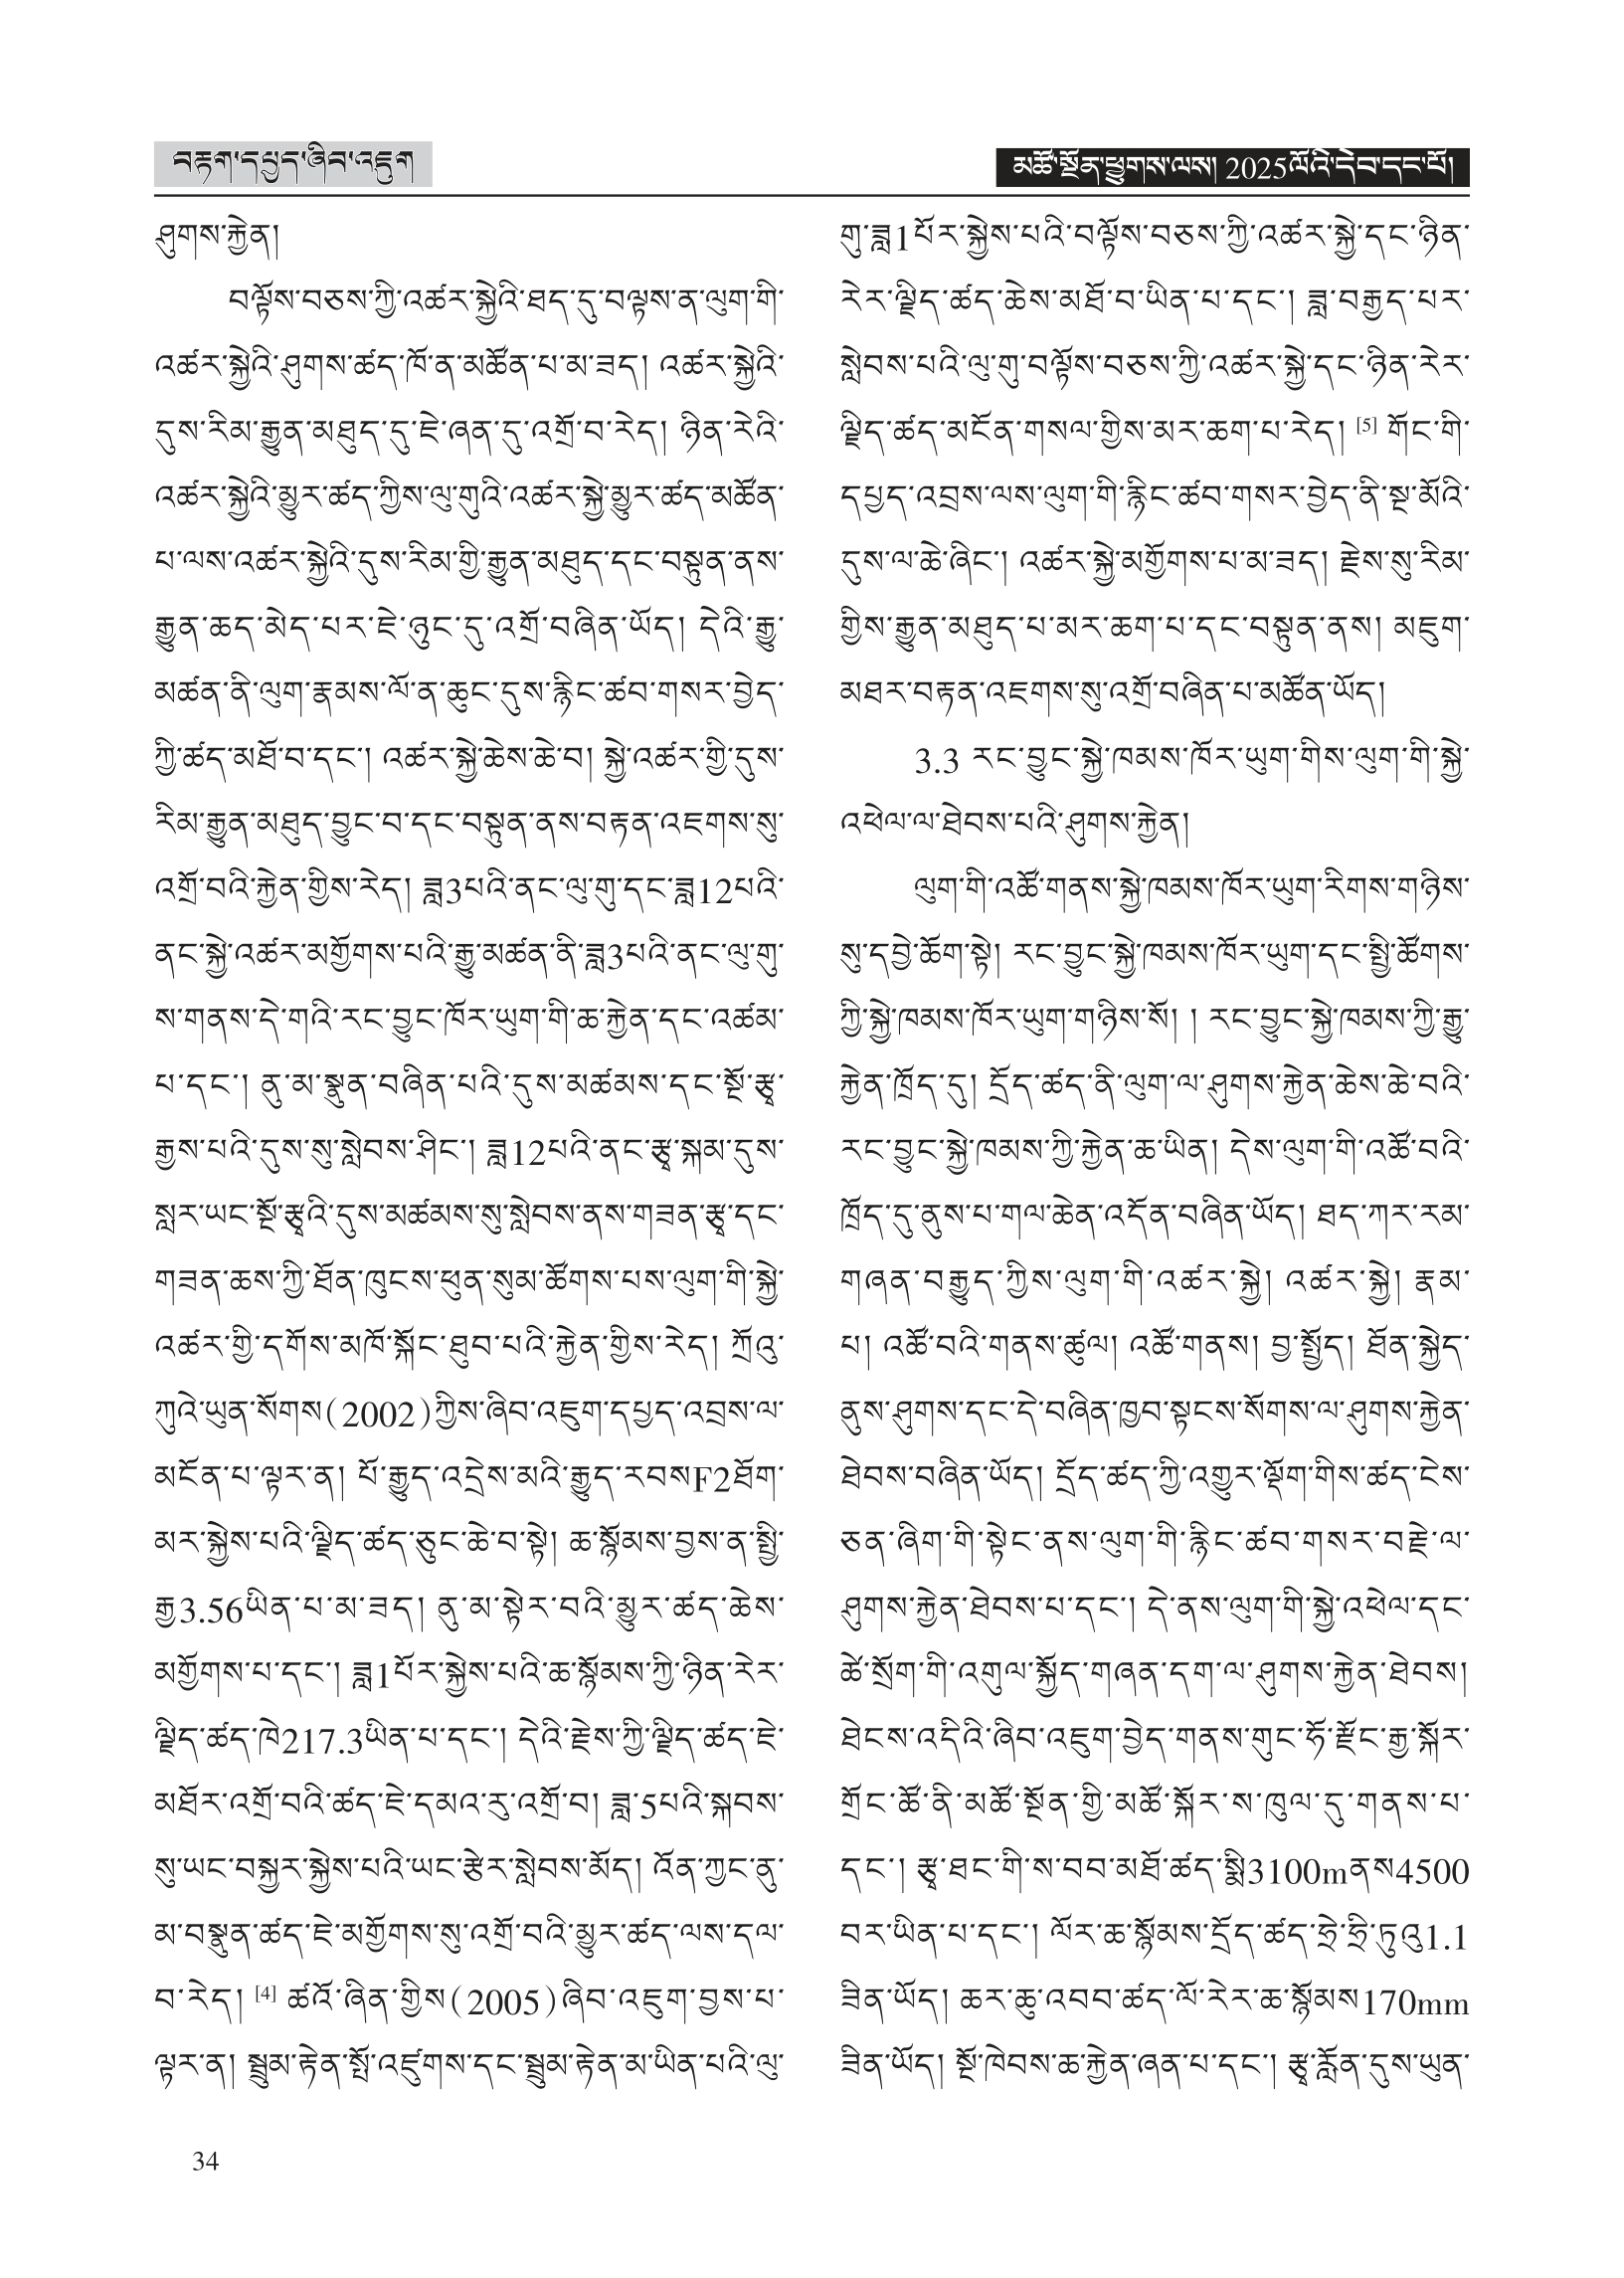 བརྟག་དཔྱད་ཞིབ་འཇུག
མཚོ་སྔོན་ཕྱུགས་ལས། 2025ལོའི་དེབ་དང་པོ།
ཤུགས་རྐྱེན།
བལྟོས་བཅས་ཀྱི་འཚར་སྐྱེའི་ཐད་དུ་བལྟས་ན་ལུག་གི་
འཚར་སྐྱེའི་ཤུགས་ཚད་ཁོ་ན་མཚོན་པ་མ་ཟད། འཚར་སྐྱེའི་
དུས་རིམ་རྒྱུན་མཐུད་དུ་ཇེ་ཞན་དུ་འགྲོ་བ་རེད། ཉིན་རེའི་
འཚར་སྐྱེའི་མྱུར་ཚད་ཀྱིས་ལུ་གུའི་འཚར་སྐྱེ་མྱུར་ཚད་མཚོན་
པ་ལས་འཚར་སྐྱེའི་དུས་རིམ་གྱི་རྒྱུན་མཐུད་དང་བསྟུན་ནས་
རྒྱུན་ཆད་མེད་པར་ཇེ་ཉུང་དུ་འགྲོ་བཞིན་ཡོད། དེའི་རྒྱུ་
མཚན་ནི་ལུག་རྣམས་ལོ་ན་ཆུང་དུས་རྙིང་ཚབ་གསར་བྱེད་
ཀྱི་ཚད་མཐོ་བ་དང་། འཚར་སྐྱེ་ཆེས་ཆེ་བ། སྐྱེ་འཚར་གྱི་དུས་
རིམ་རྒྱུན་མཐུད་བྱུང་བ་དང་བསྟུན་ནས་བརྟན་འཇགས་སུ་
འགྲོ་བའི་རྐྱེན་གྱིས་རེད། ཟླ3པའི་ནང་ལུ་གུ་དང་ཟླ12པའི་
ནང་སྐྱེ་འཚར་མགྱོགས་པའི་རྒྱུ་མཚན་ནི་ཟླ3པའི་ནང་ལུ་གུ་
ས་གནས་དེ་གའི་རང་བྱུང་ཁོར་ཡུག་གི་ཆ་རྐྱེན་དང་འཚམ་
པ་དང་། ནུ་མ་སྣུན་བཞིན་པའི་དུས་མཚམས་དང་སྔོ་རྩྭ་
རྒྱས་པའི་དུས་སུ་སླེབས་ཤིང་། ཟླ12པའི་ནང་རྩྭ་སྐམ་དུས་
སླར་ཡང་སྔོ་རྩྭའི་དུས་མཚམས་སུ་སླེབས་ནས་གཟན་རྩྭ་དང་
གཟན་ཆས་ཀྱི་ཐོན་ཁུངས་ཕུན་སུམ་ཚོགས་པས་ལུག་གི་སྐྱེ་
འཚར་གྱི་དགོས་མཁོ་སྐོང་ཐུབ་པའི་རྐྱེན་གྱིས་རེད། ཀྲོའུ་
ཀུའེ་ཡུན་སོགས(2002)ཀྱིས་ཞིབ་འཇུག་དཔྱད་འབྲས་ལ་
མངོན་པ་ལྟར་ན། པོ་རྒྱུད་འདྲེས་མའི་རྒྱུད་རབསF2ཐོག་
མར་སྐྱེས་པའི་ལྗིད་ཚད་ཅུང་ཆེ་བ་སྟེ། ཆ་སྙོམས་བྱས་ན་སྤྱི་
རྒྱ3.56ཡིན་པ་མ་ཟད། ནུ་མ་སྟེར་བའི་མྱུར་ཚད་ཆེས་
མགྱོགས་པ་དང་། ཟླ1པོར་སྐྱེས་པའི་ཆ་སྙོམས་ཀྱི་ཉིན་རེར་
ལྗིད་ཚད་ཁེ217.3ཡིན་པ་དང་། དེའི་རྗེས་ཀྱི་ལྗིད་ཚད་ཇེ་
མཐོར་འགྲོ་བའི་ཚད་ཇེ་དམའ་རུ་འགྲོ་བ། ཟླ་5པའི་སྐབས་
སུ་ཡང་བསྐྱར་སྐྱེས་པའི་ཡང་རྩེར་སླེབས་མོད། འོན་ཀྱང་ནུ་
མ་བསྣུན་ཚད་ཇེ་མགྱོགས་སུ་འགྲོ་བའི་མྱུར་ཚད་ལས་དལ་
བ་རེད། [4] ཚའོ་ཞིན་གྱིས(2005)ཞིབ་འཇུག་བྱས་པ་
ལྟར་ན། སྦྲུམ་རྟེན་སྤོ་འཛུགས་དང་སྦྲུམ་རྟེན་མ་ཡིན་པའི་ལུ་
གུ་ཟླ1པོར་སྐྱེས་པའི་བལྟོས་བཅས་ཀྱི་འཚར་སྐྱེ་དང་ཉིན་
རེར་ལྗིད་ཚད་ཆེས་མཐོ་བ་ཡིན་པ་དང་། ཟླ་བརྒྱད་པར་
སླེབས་པའི་ལུ་གུ་བལྟོས་བཅས་ཀྱི་འཚར་སྐྱེ་དང་ཉིན་རེར་
ལྗིད་ཚད་མངོན་གསལ་གྱིས་མར་ཆག་པ་རེད། [5] གོང་གི་
དཔྱད་འབྲས་ལས་ལུག་གི་རྙིང་ཚབ་གསར་བྱེད་ནི་སྔ་མོའི་
དུས་ལ་ཆེ་ཞིང་། འཚར་སྐྱེ་མགྱོགས་པ་མ་ཟད། རྗེས་སུ་རིམ་
གྱིས་རྒྱུན་མཐུད་པ་མར་ཆག་པ་དང་བསྟུན་ནས། མཇུག་
མཐར་བརྟན་འཇགས་སུ་འགྲོ་བཞིན་པ་མཚོན་ཡོད།
3.3 རང་བྱུང་སྐྱེ་ཁམས་ཁོར་ཡུག་གིས་ལུག་གི་སྐྱེ་
འཕེལ་ལ་ཐེབས་པའི་ཤུགས་རྐྱེན།
ལུག་གི་འཚོ་གནས་སྐྱེ་ཁམས་ཁོར་ཡུག་རིགས་གཉིས་
སུ་དབྱེ་ཆོག་སྟེ། རང་བྱུང་སྐྱེ་ཁམས་ཁོར་ཡུག་དང་སྤྱི་ཚོགས་
ཀྱི་སྐྱེ་ཁམས་ཁོར་ཡུག་གཉིས་སོ། ། རང་བྱུང་སྐྱེ་ཁམས་ཀྱི་རྒྱུ་
རྐྱེན་ཁྲོད་དུ། དྲོད་ཚད་ནི་ལུག་ལ་ཤུགས་རྐྱེན་ཆེས་ཆེ་བའི་
རང་བྱུང་སྐྱེ་ཁམས་ཀྱི་རྐྱེན་ཆ་ཡིན། དེས་ལུག་གི་འཚོ་བའི་
ཁྲོད་དུ་ནུས་པ་གལ་ཆེན་འདོན་བཞིན་ཡོད། ཐད་ཀར་རམ་
གཞན་བརྒྱུད་ཀྱིས་ལུག་གི་འཚར་སྐྱེ། འཚར་སྐྱེ། རྣམ་
པ། འཚོ་བའི་གནས་ཚུལ། འཚོ་གནས། བྱ་སྤྱོད། ཐོན་སྐྱེད་
ནུས་ཤུགས་དང་དེ་བཞིན་ཁྱབ་སྟངས་སོགས་ལ་ཤུགས་རྐྱེན་
ཐེབས་བཞིན་ཡོད། དྲོད་ཚད་ཀྱི་འགྱུར་ལྡོག་གིས་ཚད་ངེས་
ཅན་ཞིག་གི་སྟེང་ནས་ལུག་གི་རྙིང་ཚབ་གསར་བརྗེ་ལ་
ཤུགས་རྐྱེན་ཐེབས་པ་དང་། དེ་ནས་ལུག་གི་སྐྱེ་འཕེལ་དང་
ཚེ་སྲོག་གི་འགུལ་སྐྱོད་གཞན་དག་ལ་ཤུགས་རྐྱེན་ཐེབས།
ཐེངས་འདིའི་ཞིབ་འཇུག་བྱེད་གནས་གུང་ཧོ་རྫོང་རྒྱ་སྐོར་
གྲོང་ཚོ་ནི་མཚོ་སྔོན་གྱི་མཚོ་སྐོར་ས་ཁུལ་དུ་གནས་པ་
དང་། རྩྭ་ཐང་གི་ས་བབ་མཐོ་ཚད་སྨི3100mནས4500
བར་ཡིན་པ་དང་། ལོར་ཆ་སྙོམས་དྲོད་ཚད་ཧྲེ་ཧྲི་ཏུའུ1.1
ཟིན་ཡོད། ཆར་ཆུ་འབབ་ཚད་ལོ་རེར་ཆ་སྙོམས170mm
ཟིན་ཡོད། སྔོ་ཁེབས་ཆ་རྐྱེན་ཞན་པ་དང་། རྩྭ་རློན་དུས་ཡུན་
34